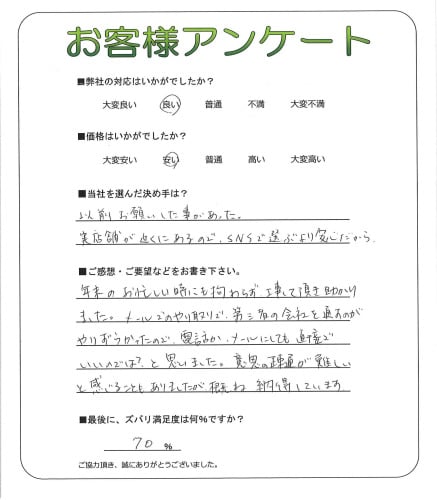 お客様アンケート
■弊社の対応はいかがでしたか？
大変良い 良い 普通 不満 大変不満
■価格はいかがでしたか？
大変安い 安い 普通 高い 大変高い
■当社を選んだ決め手は？
以前お願いした事があった。
実店舗が近くにあるので、SNSで選ぶより安心だから
■ご感想・ご要望などをお書き下さい。
年末のお忙しい時にも拘わらず工事して頂き助かり
ました。メールでのやり取りで、第三者の会社を通すのが
やりずらかったので、電話か、メールにしても直接で
いいのでは？と思いました。意思の疎通が難しい
と感じることもありましたが概ね納得しています
■最後に、ズバリ満足度は何%ですか？
70 %
ご協力頂き、誠にありがとうございました。